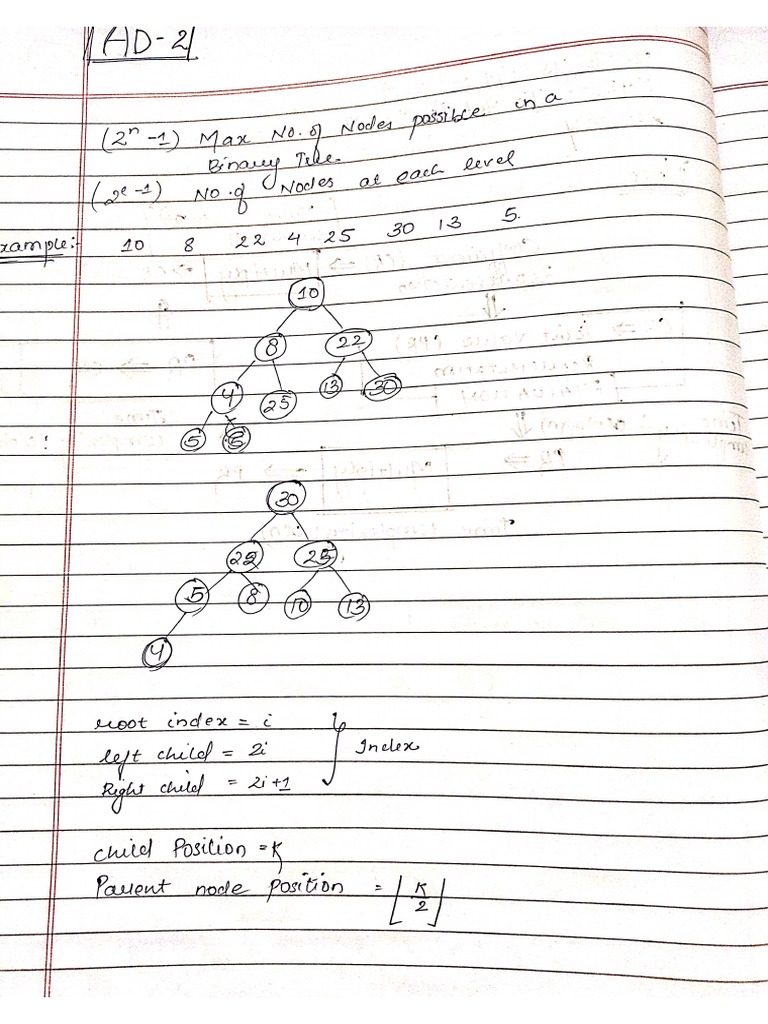 AD-2
(2ⁿ-1) Max No. of Nodes possible in a
Binary Tree.
(2^l-1) No. of Nodes at each level
xample:- 10 8 22 4 25 30 13 5.
10
8 22
4 25 13 30
5
30
22 25
5 8 10 13
4
root index = i
left child = 2i
Right child = 2i+1
Index
child Position = K
Parent node position = ⌊K/2⌋